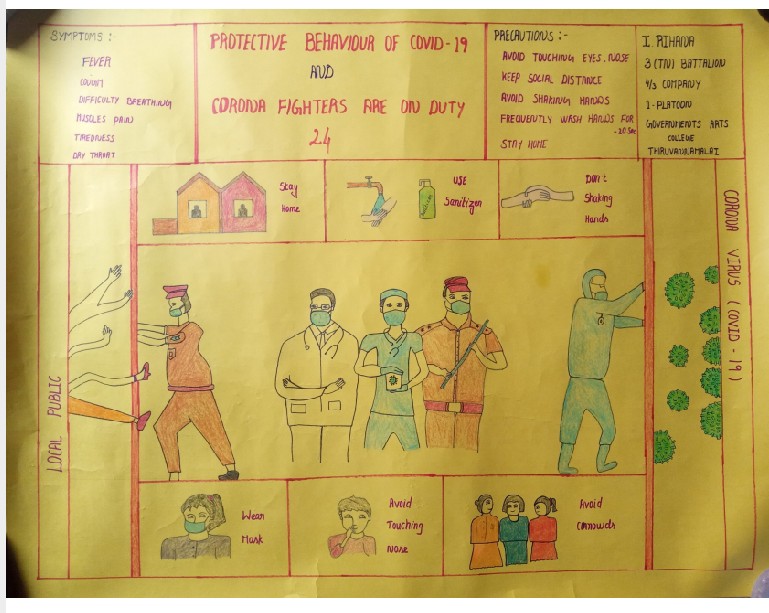 SYMPTOMS :
FEVER
COUGH
DIFFICULTY BREATHING
MUSCLES PAIN
TIREDNESS
DRY THROAT
PROTECTIVE BEHAVIOUR OF COVID-19
AND
CORONA FIGHTERS ARE ON DUTY
24
PRECAUTIONS :-
AVOID TOUCHING EYES, NOSE
KEEP SOCIAL DISTANCE
AVOID SHAKING HANDS
FREQUENTLY WASH HANDS FOR
- 20 sec
STAY HOME
I. RIHANA
3 (TN) BATTALION
4/3 COMPANY
1-PLATOON
GOVERNMENTS ARTS
COLLEGE
Stay
Home
USE
Sanitizer
Don't
Shaking
Hands
LOCAL PUBLIC
CORONA VIRUS (COVID - 19)
Wear
Mask
Avoid
Touching
Nose
Avoid